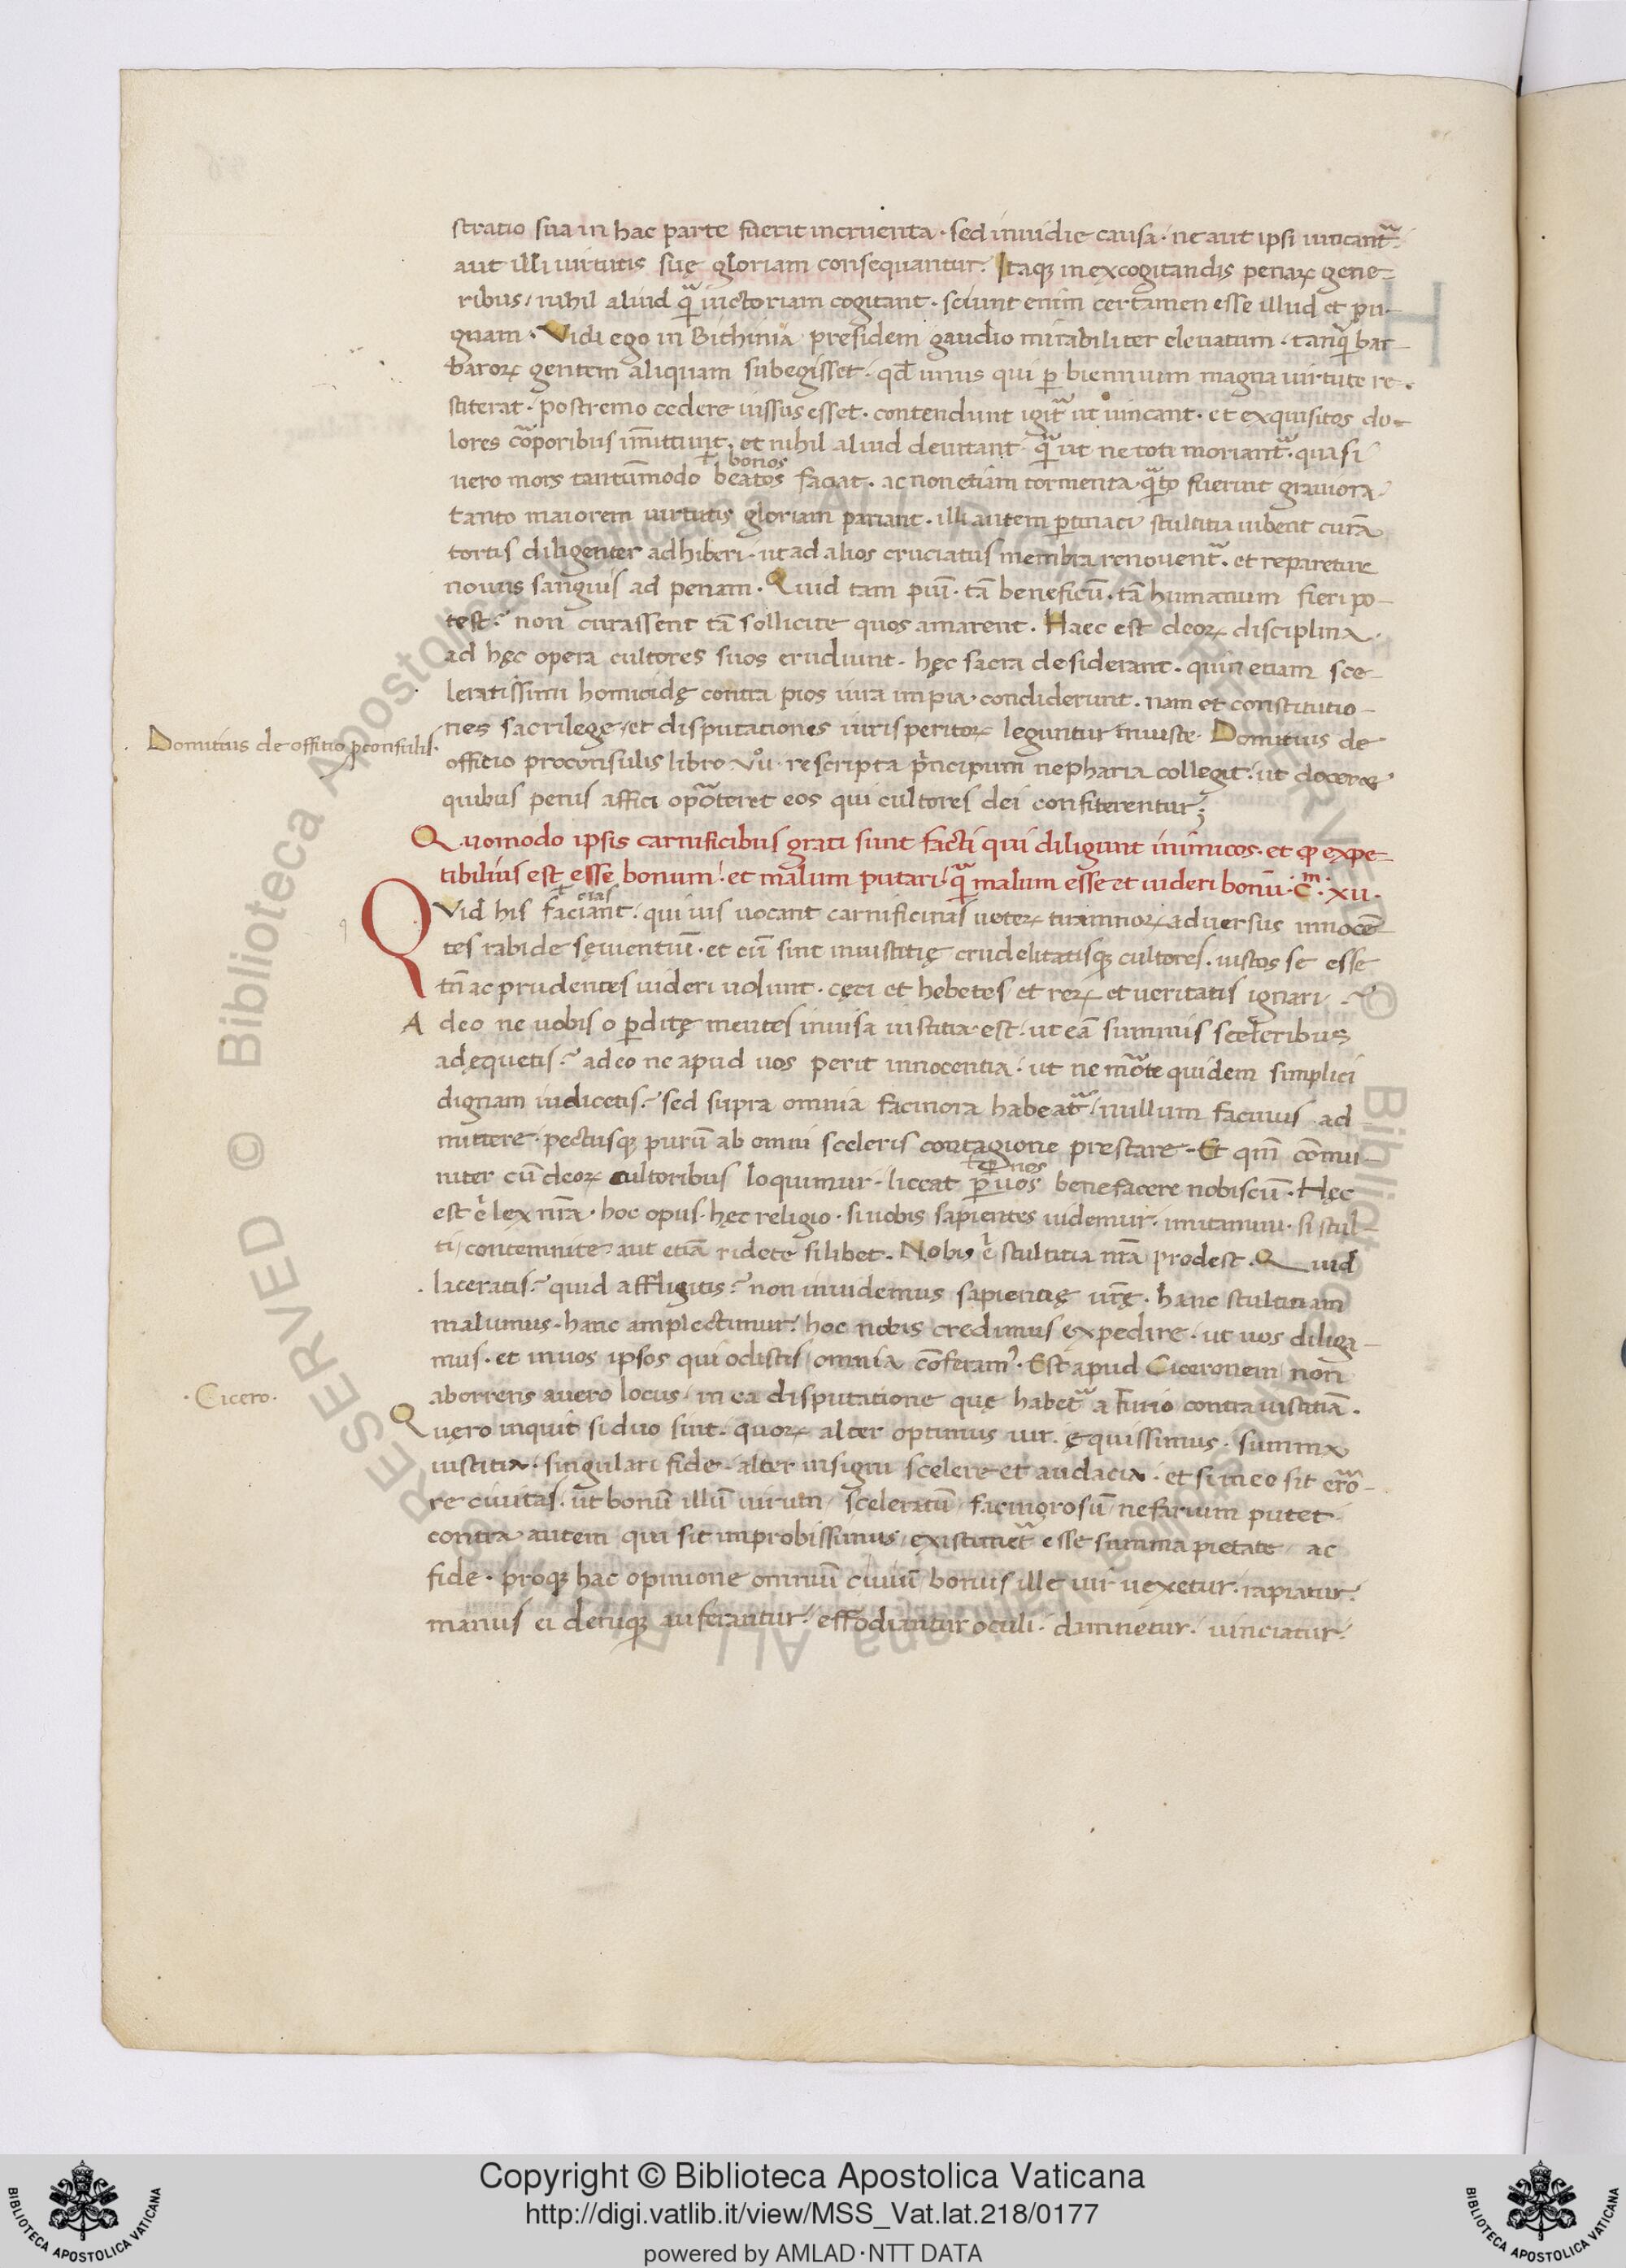 stratio sua in hac parte fuerit incruenta · sed inuidie causa · ne aut ipsi uincant᷑ ·
aut illi uirtutis suę gloriam consequantur. Itaqꝫ in excogitandis penaꝝ gene-
ribus / nihil aliud qᷓ uictoriam cogitant · sciunt enim certamen esse illud et pu-
gnam · Vidi ego in Bithinia presidem gaudio mirabiliter eleuatum · tanqᷓ bar-
baroꝝ gentem aliquam subegisset · qđ unus qui ꝑ biennium magna uirtute re-
stiterat · postremo cedere uissus esset · contendunt igit᷑ ut uincant · et exquisitos do-
lores coꝛporibus īmittunt · et nihil aliud deuitant · qᷓ ut ne toti moriant᷑ · quasi
ł bonos
uero mors tantūmodo beatos faciat · ac non etiam tormenta · qᷓto fuerint grauiora ·
tanto maiorem uirtutis gloriam pariant · illi autem ꝑtinaci stultitia iubent curā
tortis diligenter adhiberi · ut ad alios cruciatus membra renouent᷑ · et reparetur
nouus sanguis ad penam · Quid tam piū · tā beneficū · tā humanum fieri po-
test? non curassent tā sollicite quos amarent. Haec est deoꝝ disciplina ·
ad hęc opera cultores suos erudiunt · hęc sacra desiderant · quin etiam sce-
leratissimi homicidę contra pios iura impia condiderunt · nam et constitutio-
nes sacrilege / et disputationes iurisperitoꝝ leguntur iniuste · Domitius de
Domitius de offitio ꝓconsulis ·
offitio proconsulis libro vıı° rescripta pⁱncipum nepharia collegit · ut doceret
quibus penis affici opoꝛteret eos qui cultores dei confiterentur;
Quomodo ipsis carnificibus grati sunt facti qui diligunt inimicos · et ꝙ expe-
tibilius est esse bonum · et malum putari · qᷓ malum esse et uideri bonū · Cᵐ · xv ·
ł cias
Quid his faciant · qui ius uocant carnificinas ueteꝝ tirannoꝝ aduersus innocē-
tes rabide sęuientiū · et cū sint iniustitię crudelitatisqꝫ cultores · iustos se esse
tn̄ ac prudentes uideri uolunt · cęci et hebetes / et reꝝ et ueritatis ignari ·
Adeo ne uobis o ꝑditę mentes inuisa iustitia est · ut eā summis sceleribus
adęquetis? adeo ne apud uos perit innocentia · ut ne moꝛte quidem simplici
dignam iudicetis? sed supra omnia facinora habeat᷑ / nullum facinus ad
mittere · pectusqꝫ purū ab omni sceleris contagione prestare · Et qm̄ cōmu-
ł ꝑ nos
niter cū deoꝝ cultoribus loquimur · liceat ꝑ uos bene facere nobiscū · Hęc
est ē lex nr̄a · hoc opus · hęc religio · si uobis sapientes uidemur · imitamini · si stul-
ti / contemnite · aut etiā ridete si libet. Nobis ē stultitia nr̄a prodest · Quid
laceratis? quid affligitis? non inuidemus sapientię ur̄ę · hanc stultitiam
malumus · hanc amplectimur · hoc nobis credimus expedire · ut uos diliga-
mus · et in uos ipsos qui odistis / omnia cōferam᷒ · Est apud Ciceronem non
· Cicero ·
aborrens a uero locus · in ea disputatione quę habet᷑ a Furio contra iustitiā ·
Quęro inquit si duo sint · quoꝝ alter optimus uir · ęquissimus · summa
iustitia · singulari fide · alter insigni scelere et audacia · et si in eo sit erro-
re ciuitas · ut bonū illū uirum / sceleratū / facinorosū / nefarium putet ·
contra autem qui sit improbissimus / existimet᷑ esse summa pietate / ac
fide · proqꝫ hac opinione omniū ciuiū bonus ille uir uexetur · rapiatur ·
manus ei deniqꝫ auferantur · effodiantur oculi · damnetur · uinciatur ·
Copyright © Biblioteca Apostolica Vaticana
http://digi.vatlib.it/view/MSS_Vat.lat.218/0177
powered by AMLAD·NTT DATA